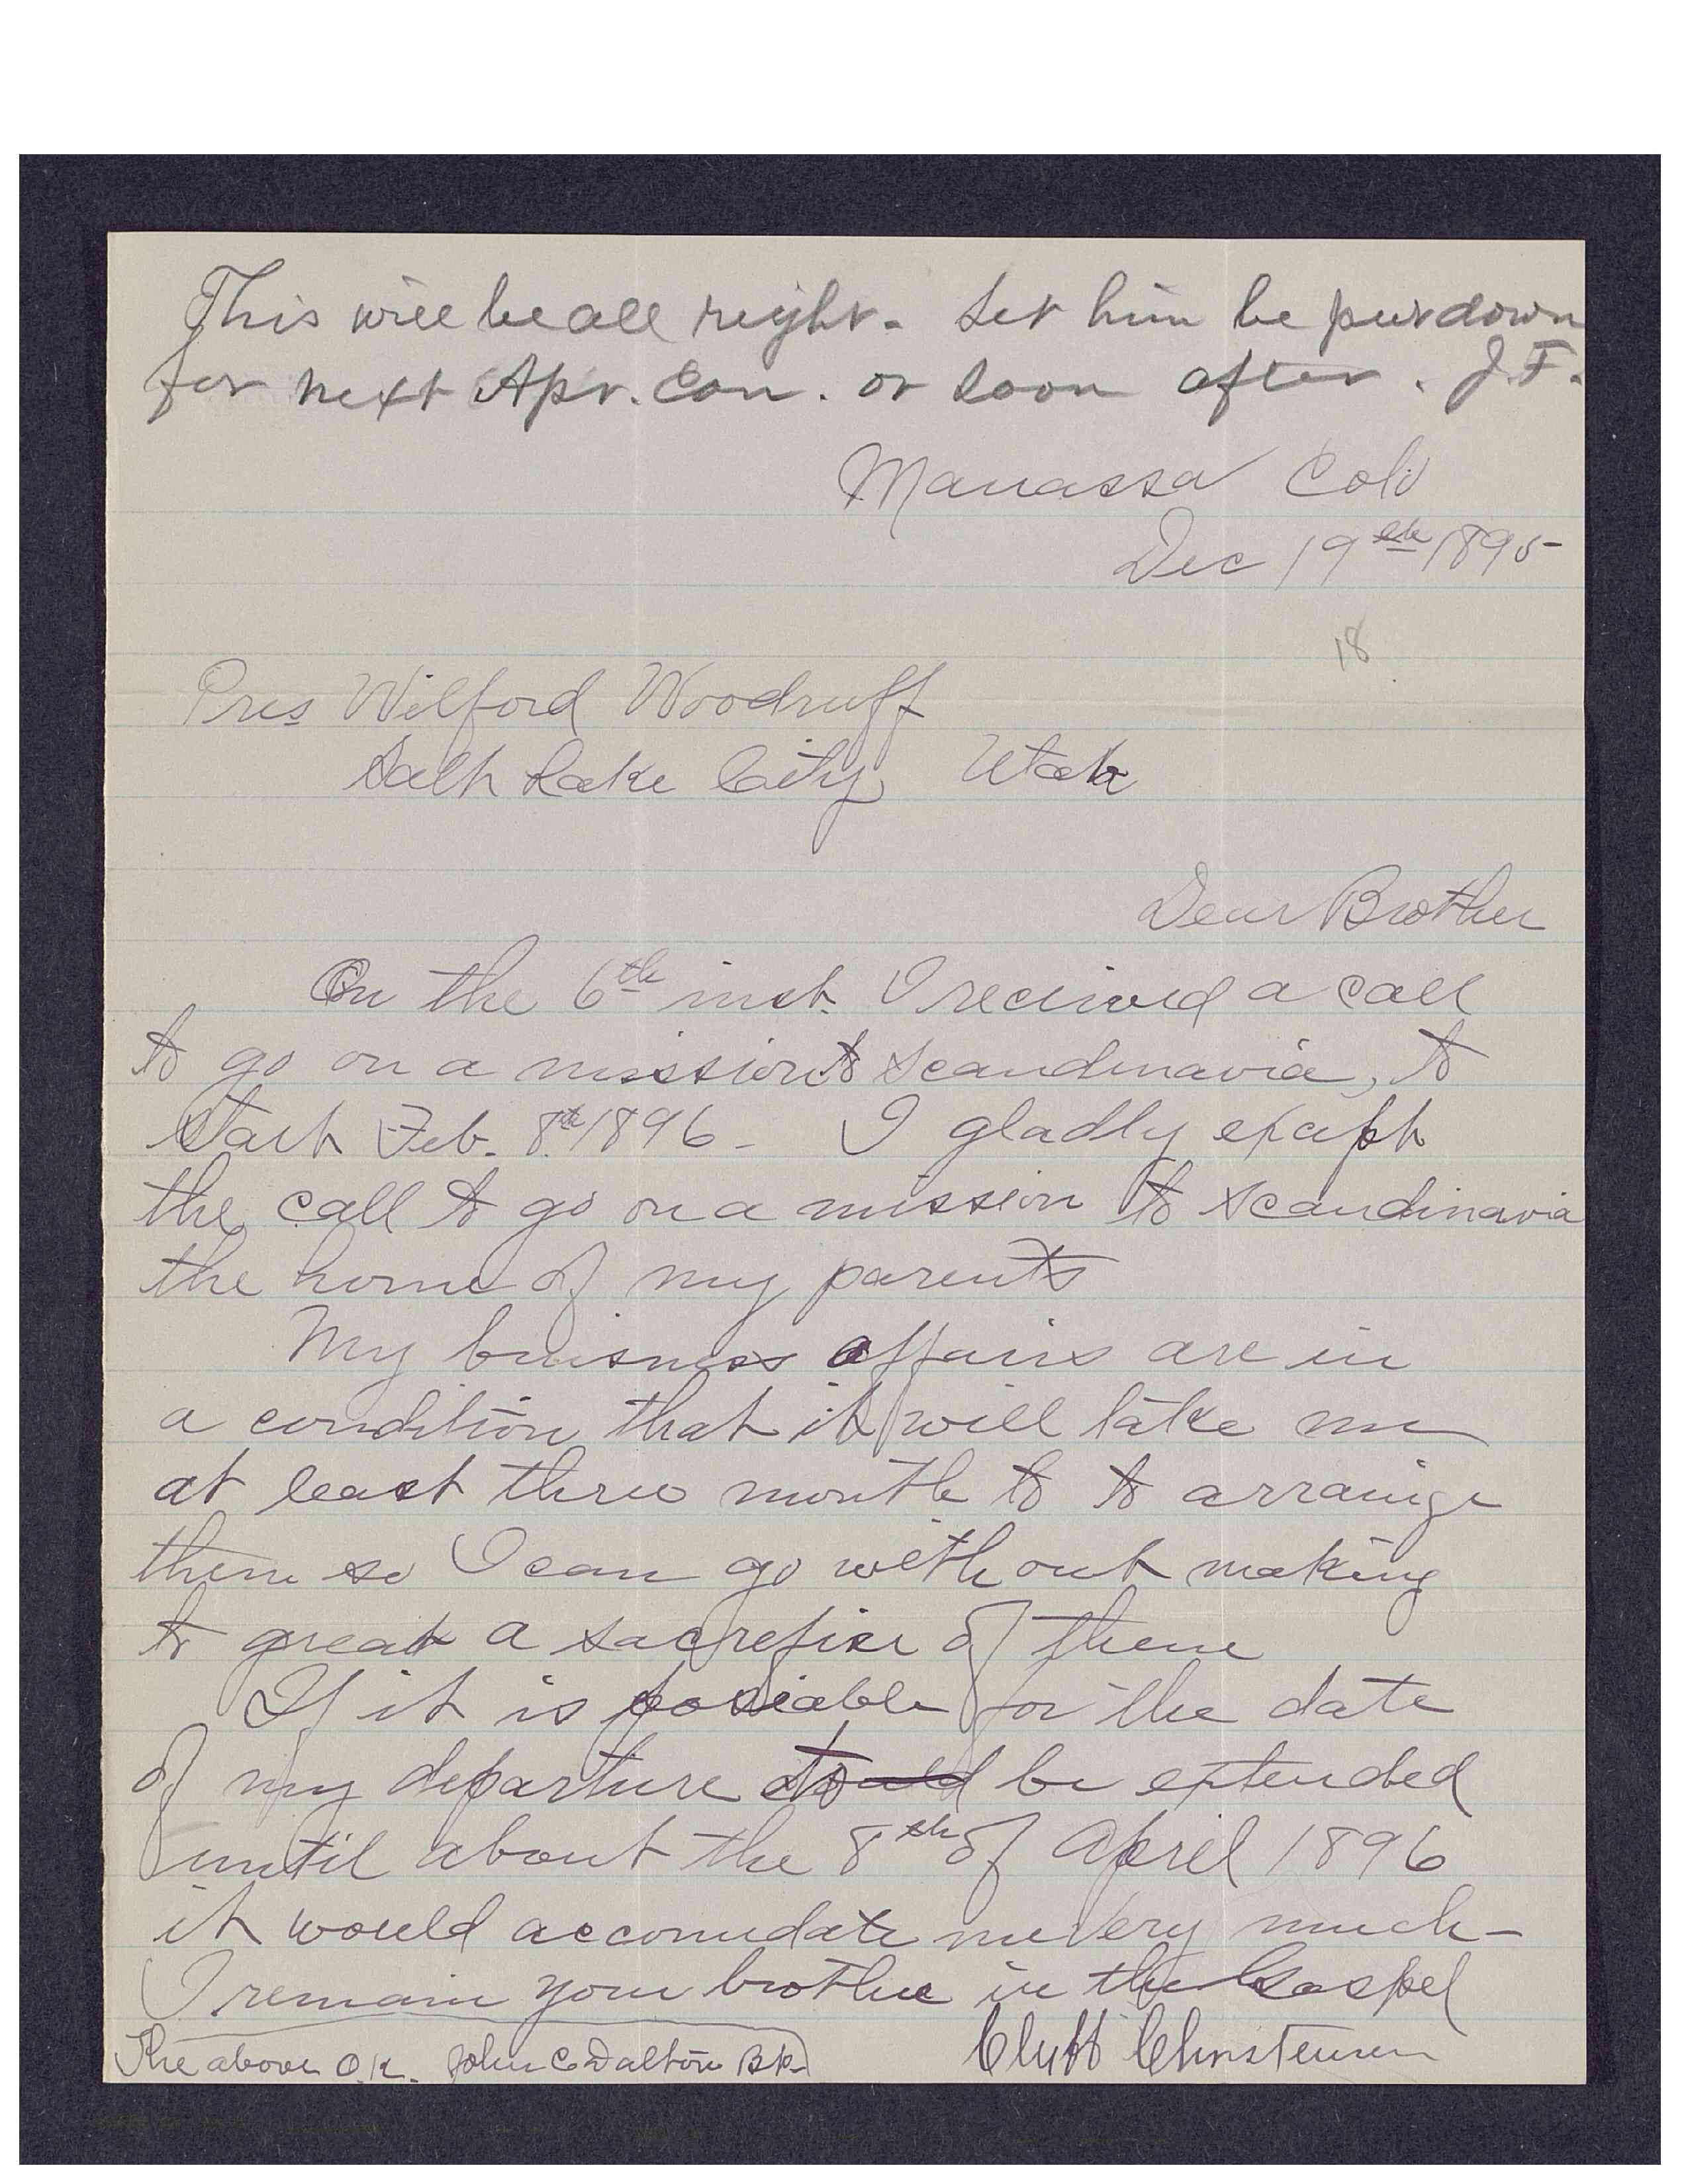 This will be all right. Let him be put down
for next Apr. Con. or soon after. J. F.
Manassa Colo
Dec 19th 1895
18
Pres Wilford Woodruff
Salt Lake City Utah
Dear Brother
On the 6th inst. I received a call
to go on a mission to Scandinavia, to
start Feb. 8th 1896. I gladly except
the call to go on a mission to Scandinavia
the home of my parents
My buisness affairs are in
a condition that it will take me
at least three month to to arrainge
them so I can go with out making
to great a sacrefise of them
If it is posiable for the date
of my departure to be extended
until about the 8th of April 1896
it would accomudate me very much-
I remain your brother in the Gospel
Cluff Christensen
The above O.K. John C Dalton Bp.